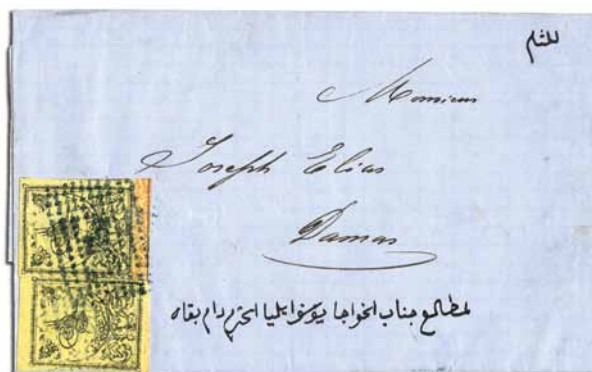 للشام
Monsieur
Joseph Elias
Damas
لمطالع جناب الخواجا يوسف ايليا المحترم دام بقاه